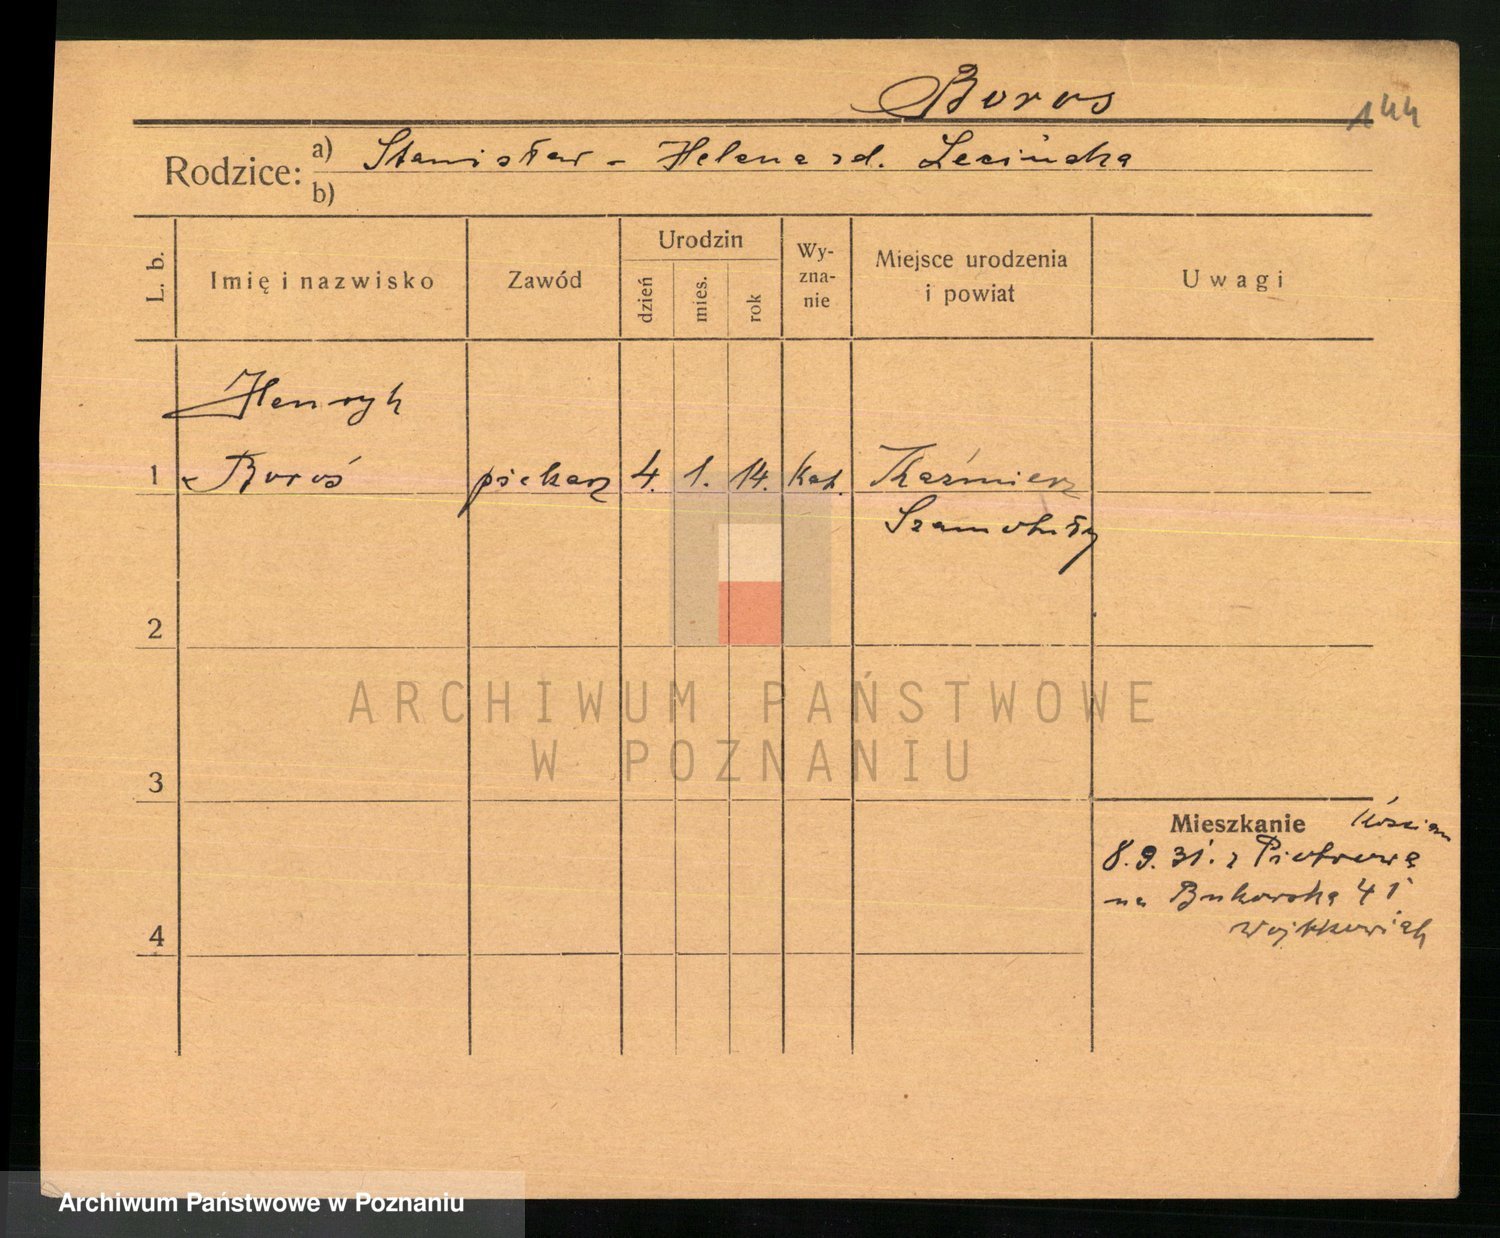 Boros
144
Rodzice: a) Stanisław - Helena zd. Lesińska
b)
L. b.
Imię i nazwisko
Zawód
Urodzin
dzień
mies.
rok
Wy-
zna-
nie
Miejsce urodzenia
i powiat
Uwagi
Henryk
1 Boroś piekarz 4. 1. 14. kat. Kaźmierz
Szamotuły
2
ARCHIWUM PAŃSTWOWE
W POZNANIU
3
Mieszkanie Kościan
8.9.31. z Piotrowa
na Bukowska 41
Wojtkowiak
4
Archiwum Państwowe w Poznaniu